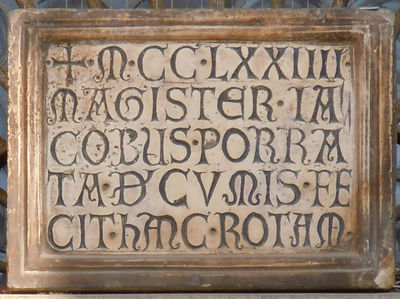 + · M · CCLXXIIII ·
MAGISTER · IA
COBUS · PORRA
TA D' CVMIS · FE
CIT · hANC ROTAM ·